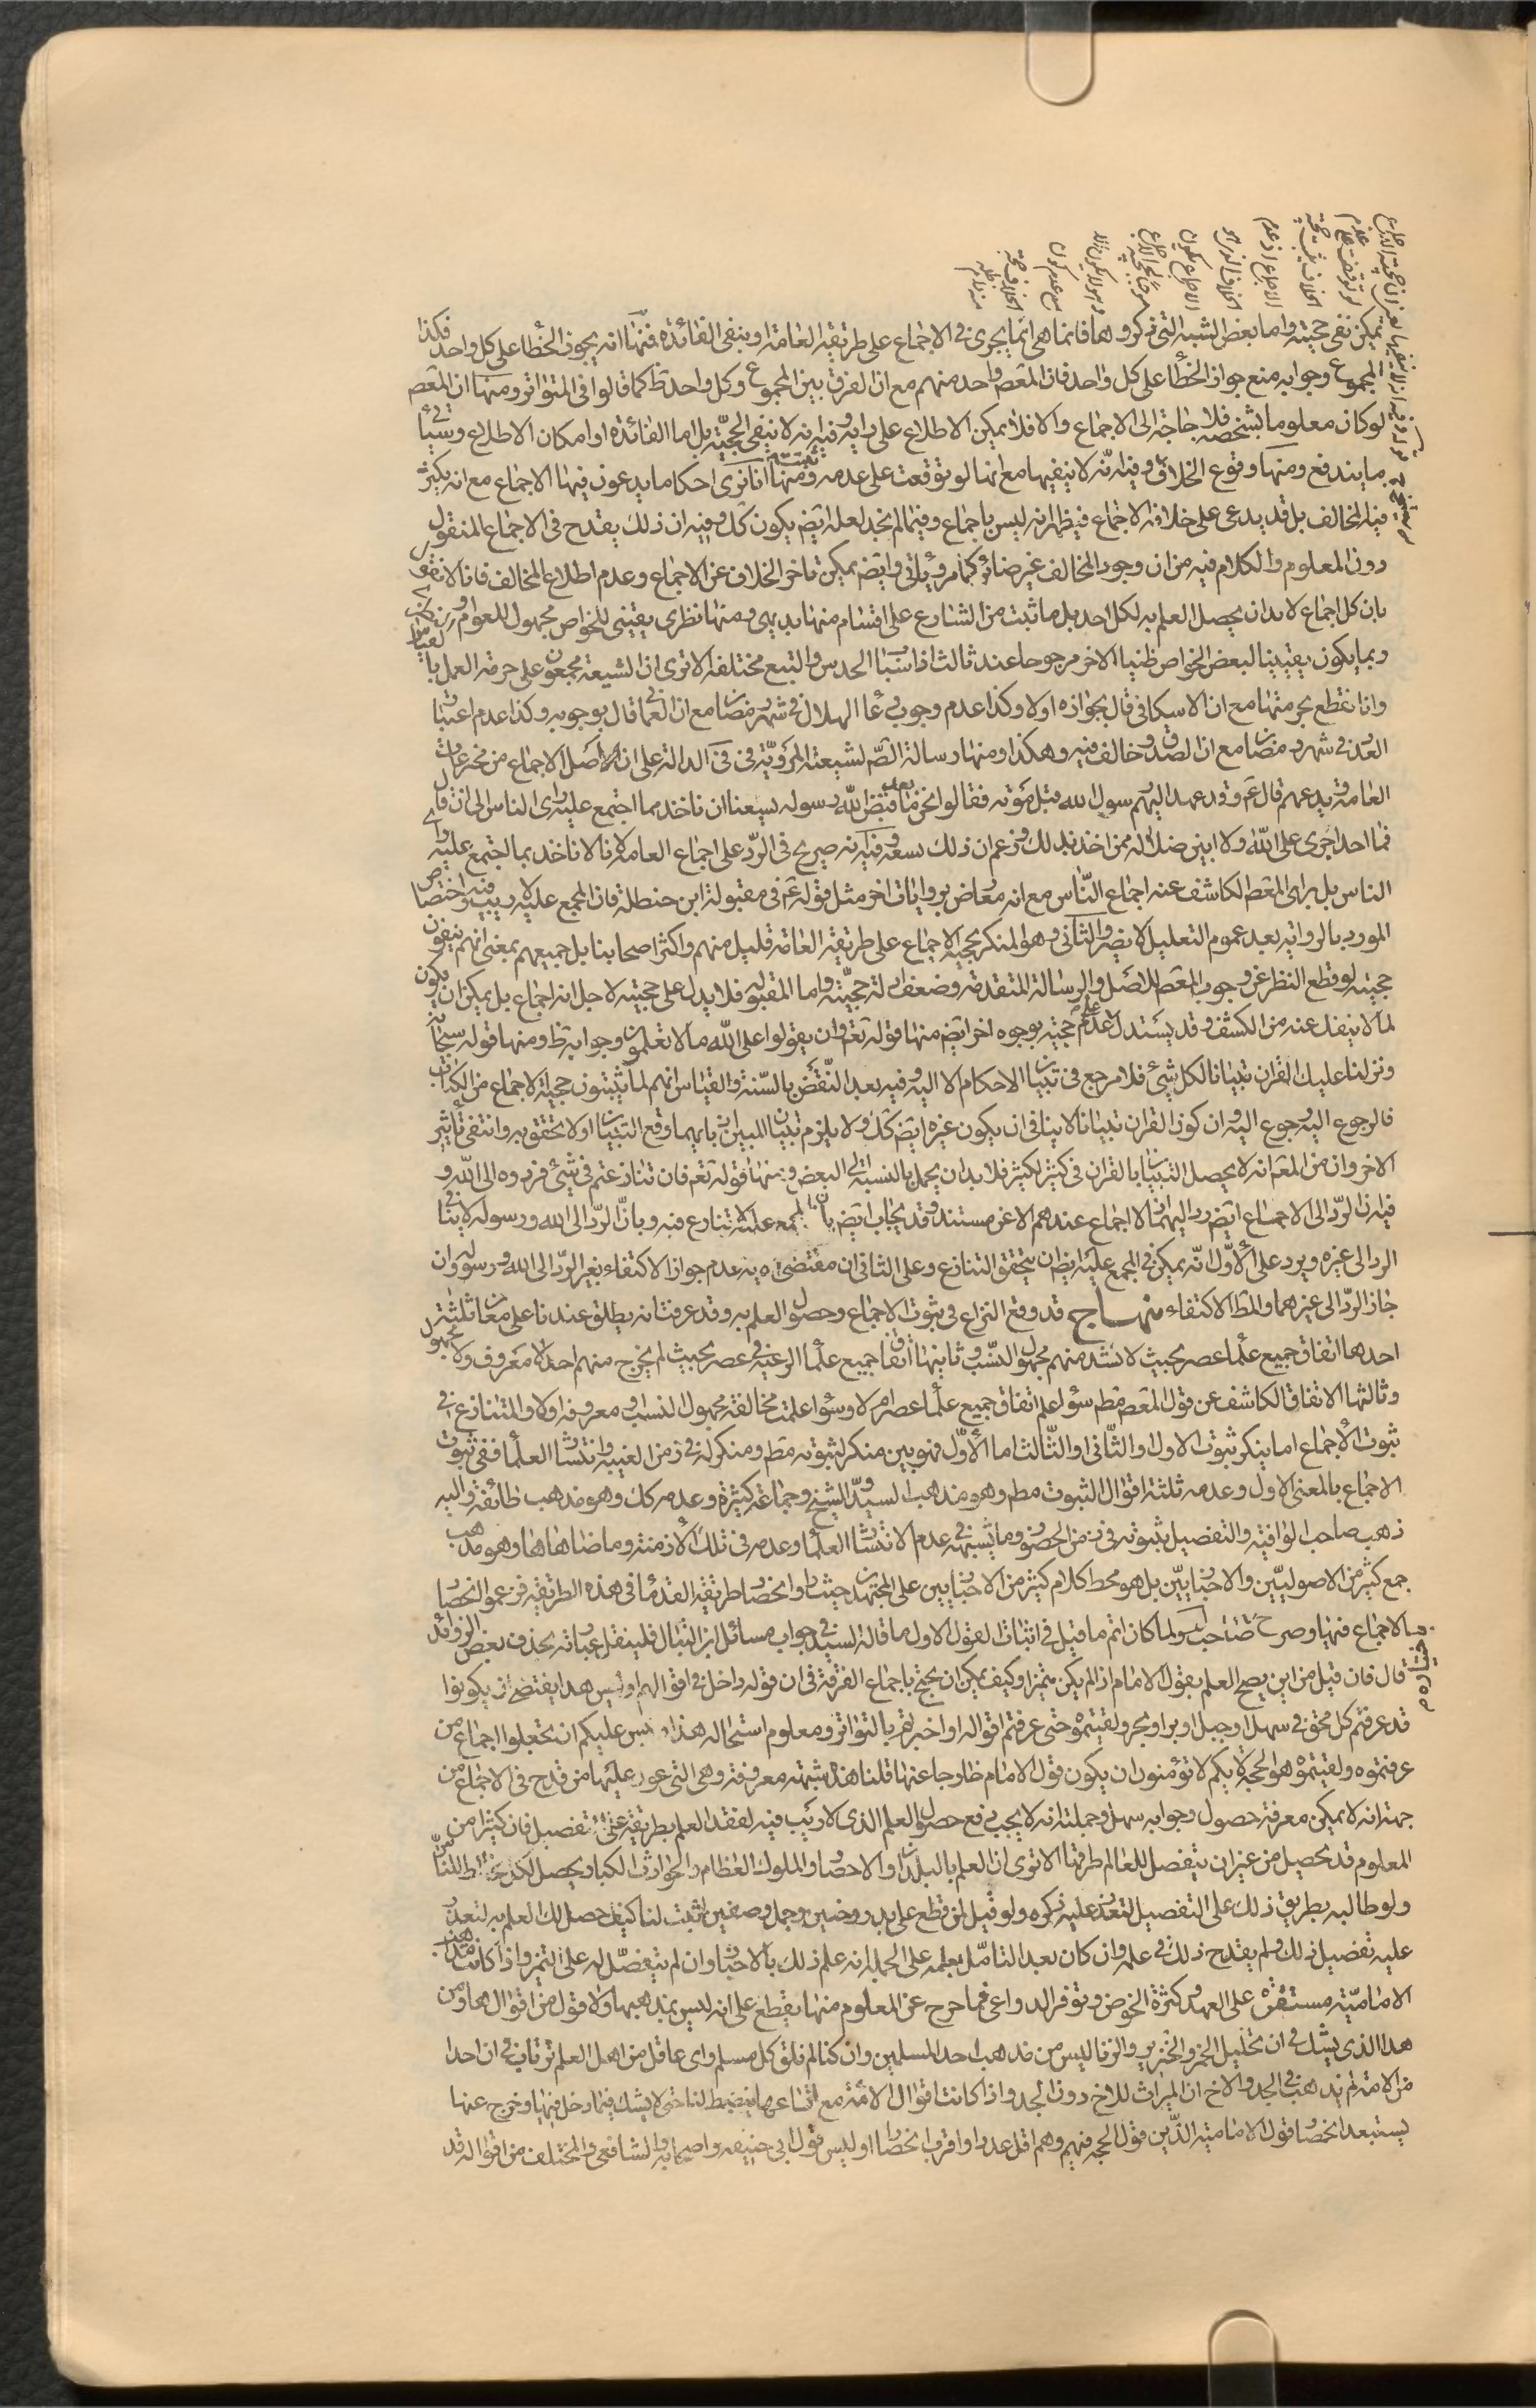 يمكن نفى حجيته واما بعض الشبه التى ذكروها فانما هى انما يجرى فى الاجماع على طريقة العامة او ينفى الفائدة فمنها انه يجوز الخطأ على كل واحد فكذا
المجموع وجوابه منع جواز الخطأ على كل واحد فان المعصوم واحد منهم مع ان الفرق بين المجموع وكل واحد ظ كما قالوا فى المتواتر ومنها ان المعصم
لو كان معلوما بشخصه فلا حاجة الى الاجماع والا فلا يمكن الاطلاع على رايه وفيه انه لا ينفى الحجية بل اما الفائدة او امكان الاطلاع وسيأتى
ما يندفع ومنها وقوع الخلاف وفيه انه لا ينفيها مع انها لو توقفت على عدمه ومنها انا نرى احكاما يدعون فيها الاجماع مع انه يكثر
فيه المخالف بل قد يدعى على خلافه الاجماع فيظهر انه ليس باجماع وفيما لم نجد لعله ايض يكون كك وفيه ان ذلك يقدح فى الاجماع المنقول
دون المعلوم والكلام فيه من ان وجود المخالف غير ضائر كما مر ويأتى وايض يمكن تاخر الخلاف عن الاجماع وعدم اطلاع المخالف فانا لا نقول
بان كل اجماع لا بد ان يحصل العلم به لكل احد بل ما ثبت من الشارع على اقسام منها بديهى ومنها نظرى يقينى للخواص مجهول للعوام
وربما يكون يقينيا لبعض الخواص ظنيا لاخر مرجوحا عند ثالث اذ اسباب الحدس والتتبع مختلفة الا ترى ان الشيعة مجمعون على حرمة العمل بالقياس
وانا نقطع بحرمتها مع ان الاسكافى قال بجوازه اولا وكذا عدم وجوب دعاء الهلال فى شهر رمضان مع ان العمانى قال بوجوبه وكذا عدم اعتبار
العدد فى شهر رمضان مع ان الصدوق خالف فيه وهكذا ومنها رسالة الصم لشيعته المروية فى فى الدالة على ان اصل الاجماع من مخترعات
العامة وبدعهم قال ع وقد عهد اليهم رسول الله قبل موته فقالوا نحن بعد ما قبض الله رسوله يسعنا ان ناخذ بما اجتمع عليه راى الناس الى ان قال
فما احد اجرى على الله ولا ابين ضلالة ممن اخذ بذلك وزعم ان ذلك يسعه وفيه انه صريح فى الرد على اجماع العامة لانا لا ناخذ بما اجتمع عليه راى
الناس بل براى المعصم الكاشف عنه اجماع الناس مع انه معارض بروايات اخر مثل قوله ع فى مقبولة ابن حنظلة فان المجمع عليه لا ريب فيه واختصاص
المورد بالرواية بعد عموم التعليل لا يضر والثانى وهو المنكر لحجية الاجماع على طريقة العامة قليل منهم واكثر اصحابنا بل جميعهم بمعنى انهم ينفون
حجيته لو قطع النظر عن وجوب المعصم للاصل والرسالة المتقدمة وضعف ادلة حجيته واما المقبولة فلا يدل على حجيته لاجل انه اجماع بل يمكن ان يكون
لما لا ينفك عنه من الكشف وقد يستدل على عدم حجيته بوجوه اخر ايض منها قوله تعم وان يقولوا على الله ما لا تعلمون وجوابه ظ ومنها قوله سبحانه
ونزلنا عليك القران تبيانا لكل شئ فلا مرجع فى تبيان الاحكام الا اليه وفيه بعد النقض بالسنة والقياس انهم لما يثبتون حجية الاجماع من الكتاب
فالرجوع اليه رجوع اليه وان كون القران تبيانا لا ينافى ان يكون غيره ايض كك ولا يلزم تبيان المبين اذ بايهما وقع التبيان اولا يتحقق به وانتفى تأثير
الاخر وان من المعم انه لا يحصل التبيان بالقران فى كثير لكثير فلا بد ان يحمل بالنسبة الى البعض ومنها قوله تعم فان تنازعتم فى شئ فردوه الى الله و
فيه ان الرد الى الاجماع ايض رد اليهما اذ لا اجماع عندهم الا عن مستند وقد يجاب ايض بان المجمع عليه لا تنازع فيه وبان الرد الى الله ورسوله لا ينافى
الرد الى غيره ويرد على الاول انه يمكن فى المجمع عليه ايض ان يتحقق التنازع وعلى الثانى ان مقتضى الاية عدم جواز الاكتفاء بغير الرد الى الله ورسوله وان
جاز الرد الى غيرهما والمط الاكتفاء منهاج قد وقع النزاع فى ثبوت الاجماع وحصول العلم به وقد عرفت انه يطلق عندنا على معان ثلثة
احدها اتفاق جميع علماء عصر بحيث لا يشذ منهم مجهول النسب وثانيها اتفاق جميع علماء الرعية فى عصر بحيث لم يخرج منهم احد لا معروف ولا مجهول
وثالثها الاتفاق الكاشف عن قول المعصم مطم سواء علم اتفاق جميع علماء عصر ام لا وسواء علمت مخالفة مجهول النسب او معروفه او لا والمتنازع فى
ثبوت الاجماع اما ينكر ثبوت الاول او الثانى او الثالث اما الاول فهو بين منكر لثبوته مطم ومنكر له فى زمن الغيبة وانتشار العلماء ففى ثبوت
الاجماع بالمعنى الاول وعدمه ثلثة اقوال الثبوت مطم وهو مذهب السيد والشيخ وجماعة كثيرة وعدمه كك وهو مذهب طائفة واليه
ذهب صاحب الوافية والتفصيل بثبوته فى زمن الحضور وما يشبهه فى عدم الانتشار العلماء وعدمه فى تلك الازمنة وما ضاهاها وهو مذهب
جمع كثير من الاصوليين والاخباريين بل هو محط كلام كثير من الاخباريين على المجتهدين حيث راوا انحصار طريقة القدماء فى هذه الطريقة فزعموا انحصار
الاجماع فيها وصرح صاحب ولما كان اتم ما قيل فى اثبات القول الاول ما قاله السيد فى جواب مسائل ابن التبان فلينقل عباراته بحذف بعض الزوائد
قال فان قيل من اين يصح العلم بقول الامام اذا لم يكن متميزا وكيف يمكن ان يحتج باجماع الفرقة فى ان قوله داخل فى اقوالهم او ليس هذا يقتضى ان يكونوا
قد عرفتم كل محق فى سهل او جبل او بر او بحر ولقيتموه حتى عرفتم اقواله او اخبرتم بالتواتر ومعلوم استحالة هذا وليس عليكم ان تجعلوا اجماع من
عرفتموه ولقيتموه هو الحجة لانكم لا تؤمنون ان يكون قول الامام خارجا عنها قلنا هذه شبهة معروفة وهى التى عول عليها من قدح فى الاجماع من
جهة انه لا يمكن معرفة حصول وجوابه سهل وجملته انه لا يجب دفع حصول العلم الذى لا ريب فيه لفقد العلم بطريقه على التفصيل فان كثيرا من
المعلوم قد يحصل من غير ان يتفصل للعالم طريقها الا ترى ان العلم بالبلدان والامصار والملوك العظام والحوادث الكبار يحصل لكل مخالط للناس
ولو طالبه بطريق ذلك على التفصيل لتعذر عليه ذكره ولو قيل لمن قطع على بدر وحنين وجمل وصفين اثبت لنا كيف حصل لك العلم به لتعذر
عليه تفصيل ذلك ولم يقدح ذلك فى علمه وان كان بعد التامل يعلمه على الجملة انه علم ذلك بالاخبار وان لم يتفصل له على التميز واذا كانت مذاهب
الامامية مستقرة على العهود كثرة الخوض وتوفر الدواعى فما خرج عن المعلوم منها يقطع على انه ليس بمذهبها ولا قول من اقوالها ومن
هذا الذى يشك فى ان تحليل الخمر والخنزير والزنا ليس من مذهب احد المسلمين وان كنا لم نلق كل مسلم واى عاقل من اهل العلم يرتاب فى ان احدا
من الامة لم يذهب فى الجد والاخ ان الميراث للاخ دون الجد واذا كانت اقوال الامة مع اتساعها ينضبط لنا حتى لا يشك فيما دخل فيها وخرج عنها
يستبعد انحصار قول الامامية الذين قول الحجة فيهم وهم اقل عددا واقرب انحصارا او ليس قول ابى حنيفة واصحابه والشافعى والمختلف من اقواله قد